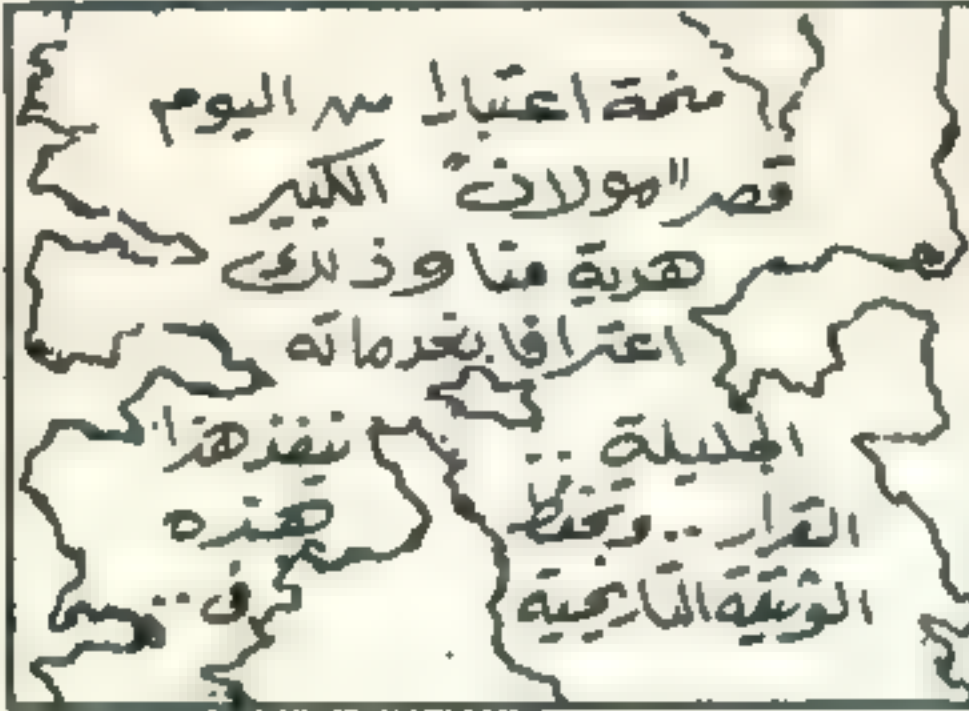 منحة اعتبارا من اليوم
قصر "مولان" الكبير
هدية منا وذلك
اعترافا بخدماته
الجليلة .. ينفذ هذا
القرار .. وتحفظ هذه
الوثيقة التاريخية في ..